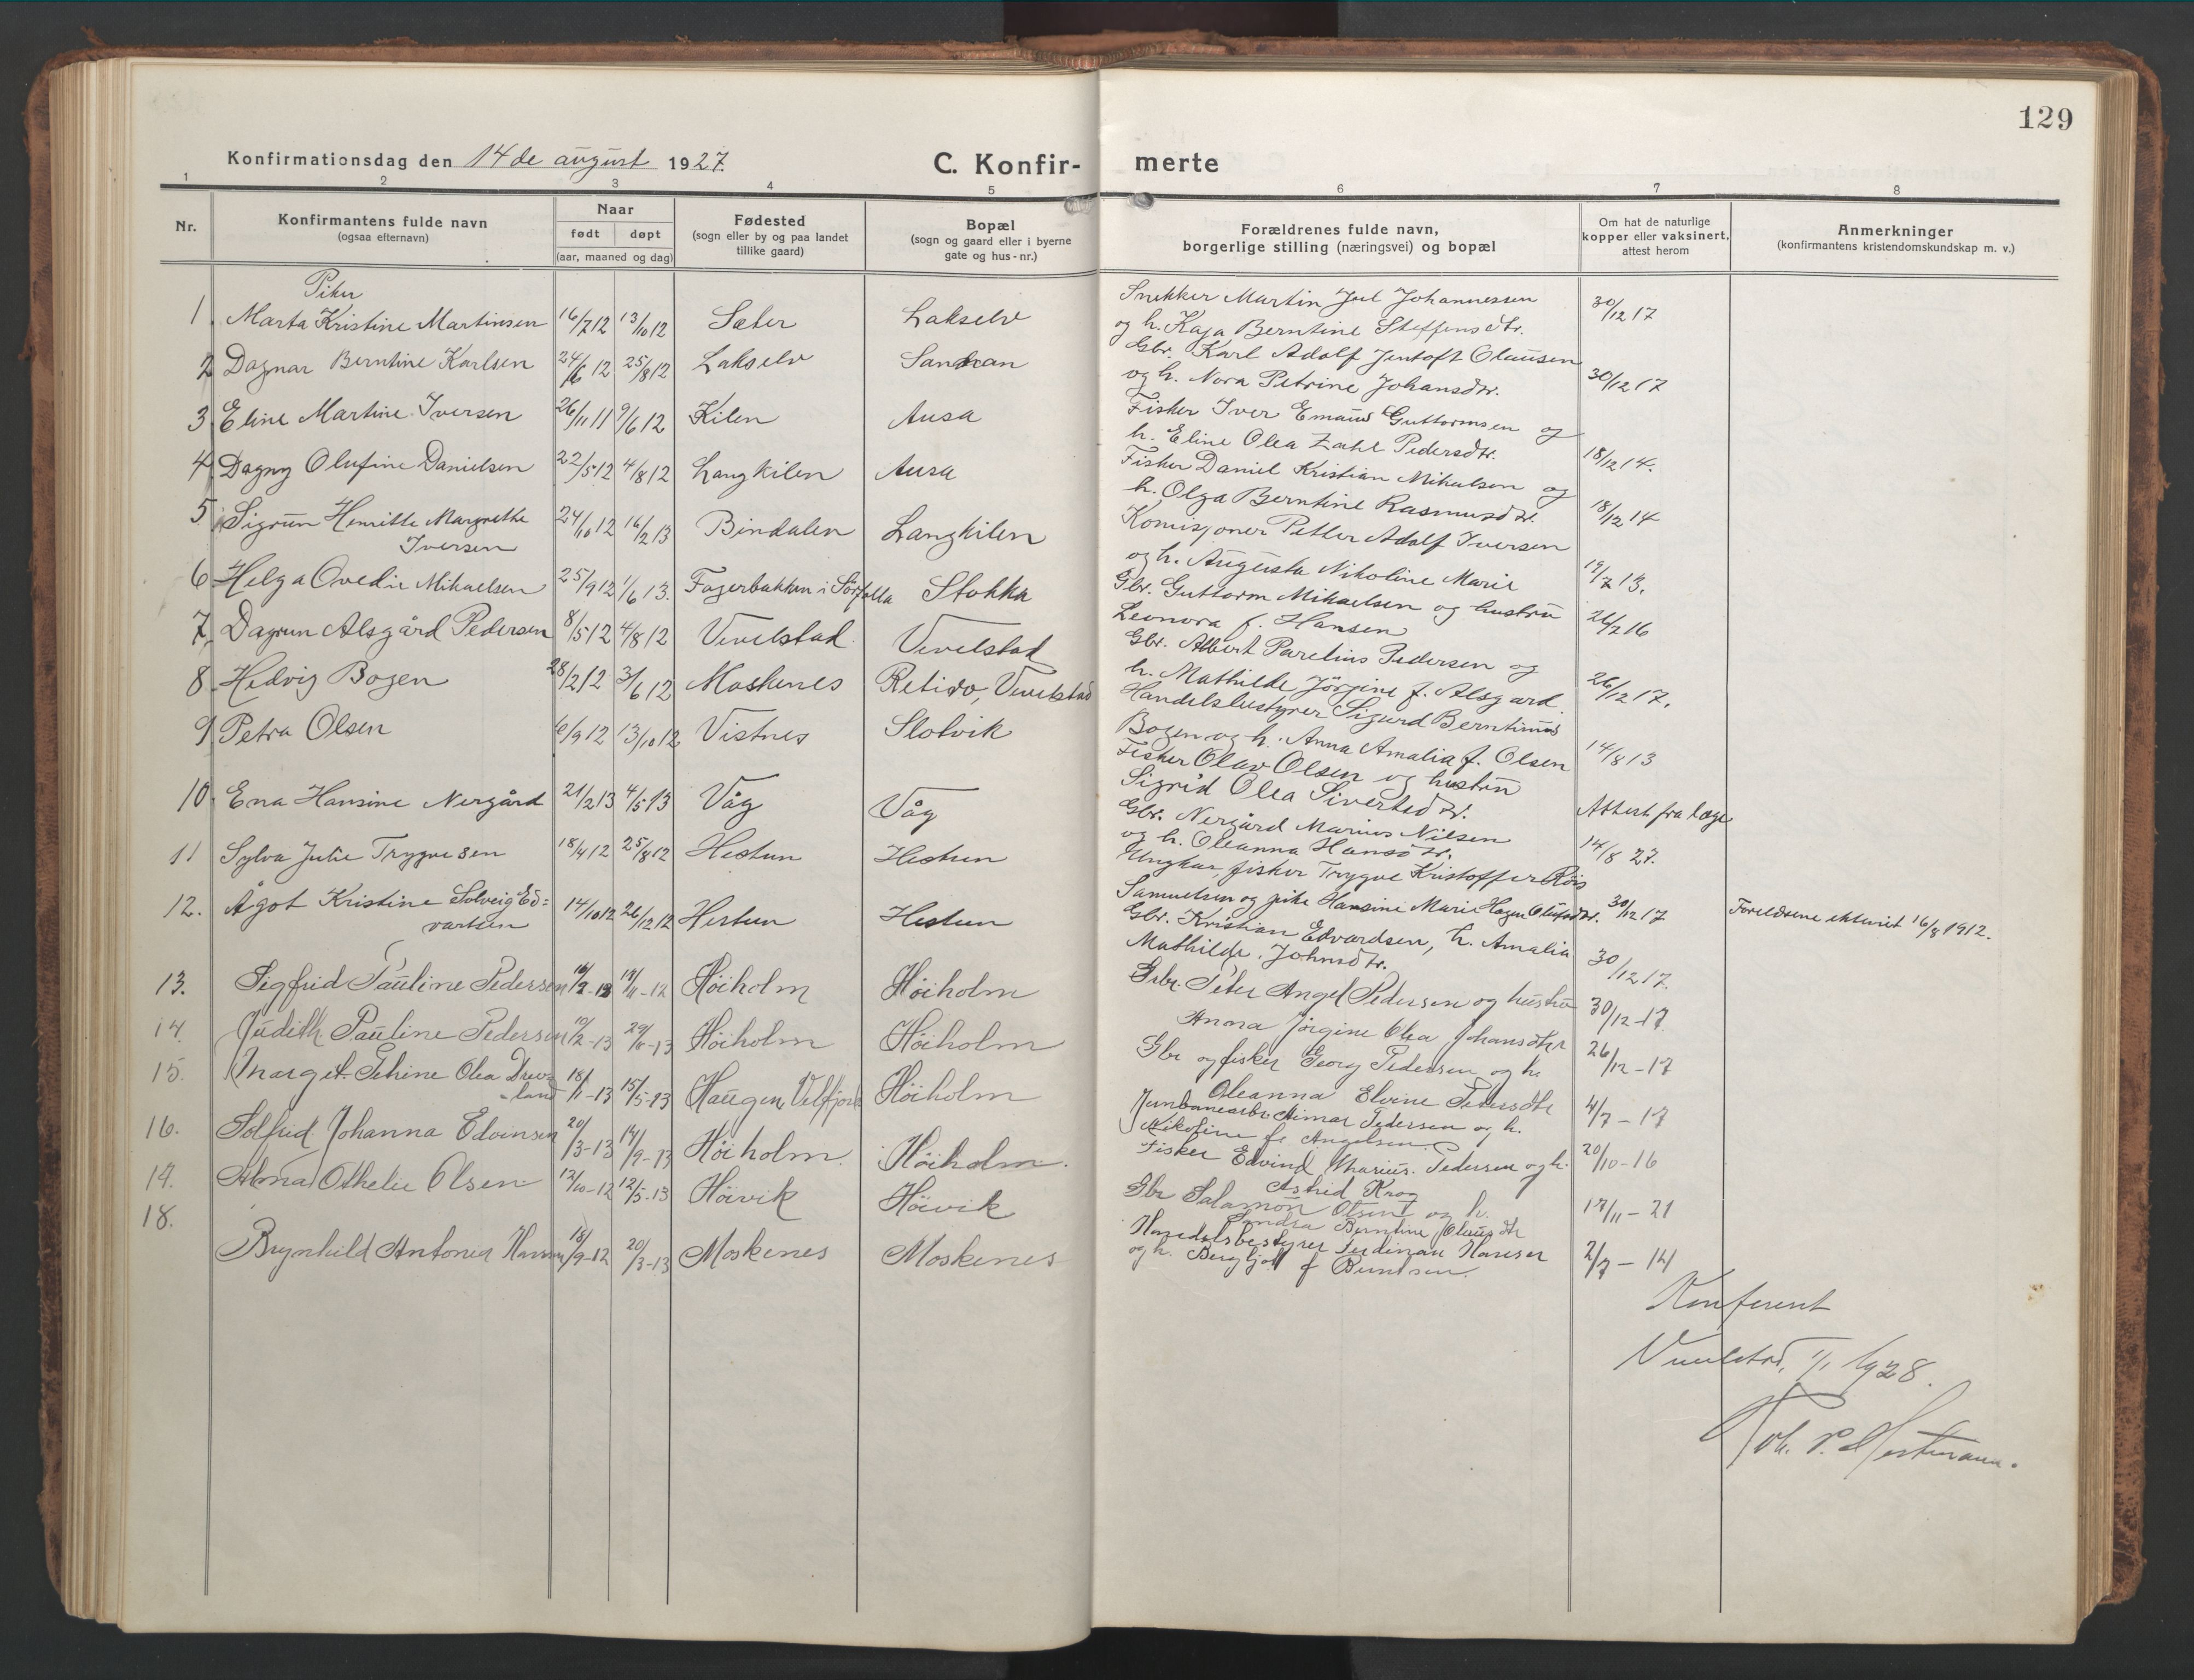 129
Konfirmationsdag den 14de august 1927.
C. Konfir-merte
1 2 3 4 5 6 7 8
Nr.
Konfirmantens fulde navn
(ogsaa efternavn)
Naar
født døpt
(aar, maaned og dag)
Fødested
(sogn eller by og paa landet
tillike gaard)
Bopæl
(sogn og gaard eller i byerne
gate og hus-nr.)
Forældrenes fulde navn,
borgerlige stilling (næringsvei) og bopæl
Om hat de naturlige
kopper eller vaksinert,
attest herom
Anmerkninger
(konfirmantens kristendomskundskap m. v.)
Piker
1 Marta Kristine Martinsen 16/7 12 13/10 12 Sæter Lakselv
Snekker Martin Juel Johannessen 30/12 17
og h. Kaja Berntine Steffensdtr.
2 Dagnar Berntine Karlsen 24/6 12 25/8 12 Lakselv
Gbr. Karl Adolf Jentoft Olausen
og h. Nora Petrine Johansdtr. 30/12 17
3 Eline Martine Iversen 26/11 11 9/6 12 Kilen Ausa
Fisker Iver Emaus Guttormsen og
h. Eline Olea Zahl Pedersdtr. 18/12 14.
4 Dagny Olufine Danielsen 22/5 12 4/8 12 Langkilen Ausa
Fisker Daniel Kristian Mikalsen og
h. Olga Berntine Rasmusdtr. 18/12 14
5 Sigrun Henritte Margrethe 24/10 12 16/2 13 Bindalen Langkilen
Iversen
Komisjonær Petter Adolf Iversen
og h. Augusta Nikoline Marie 19/7 13.
6 Helga Ovedie Mikaelsen 25/9 12 1/6 13. Fagerbakken i Sörfolla Stokka
Gbr. Guttorm Mikaelsen og hustru
Leonora f. Hansen 26/7 16
7 Dagrun Alsgård Pedersen 8/5 12 4/8 12 Vevelstad Vevelstad
Gbr. Albert Parelius Pedersen og
h. Mathilde Jörgine f. Alsgard. 26/12 17.
8 Hedvig Bogen 28/2 12 3/6 12 Moskenes Vevelstad
Handelsbestyrer Sigurd Berntinus
Bogen og h. Anna Amalia f. Olsen 14/8 13
9 Petra Olsen 6/9 12 13/10 12 Vistnes Slotvik
Fisker Olav Olsen og hustru
Sigrid Olea Sivertsdtr. Attest fra læge
10 Ena Hansine Nergård 21/2 13 4/5 13 Våg Våg
Gbr. Nergård Marius Nilsen
og h. Oleanna Hansdtr. 14/8 27.
11 Sylva Julie Trygvesen 18/4 12 25/8 12 Hestun Hestun
Ungkar, fisker Trygve Kristoffer Röis
Samuelsen og pike Hansine Marie Hagen Olufsdtr. 30/12 17 Foreldrene ekteviet 16/8 1912.
12. Ågot Kristine Solveig Ed=
vartsen 14/10 12 26/12 12 Hestun Hestun
Gbr. Kristian Edvardsen, h. Amalia
Mathilde Johnsdtr. 30/12 17.
13. Sigfrid Pauline Pedersen Höiholm Höiholm
Peter Angel Pedersen og hustru
Anna Jörgine Olea Johansdtr 30/12-17.
14. Judith Pauline Pedersen 10/2-13 Höiholm Höiholm
Gbr og fisker Georg Pedersen og h.
Oleanna Elvine Petersdtr 26/12-17
15. Marget Tehine Olea Drev=
land 18/1-13 15/5-13 Haugen Velfjord Höiholm
Jernbanearb. Aimar Pedersen og h.
Nikoline f. Angelsen 4/7-17
16. Solfrid Johanna Edvinsen 20/3-13 14/9-13 Höiholm. Höiholm.
Fisker Edvind Marius Pedersen og h.
Astrid Krog 20/10-16
17. Alma Othelie Olsen 12/10-12 12/5-13 Höivik Höivik
Gbr Salamon Olsen og h.
Sandra Berntine Olausdtr 17/11-21
18. Brynhild Antonia Hansen 18/9-12 20/3-13 Moskenes Moskenes
Handelsbestyrer Ferdinan Hansen
og h. Bergljot f Berntsen. 2/7-14
Konferert
Vevelstad, 1/1 1928.
Joh. P.